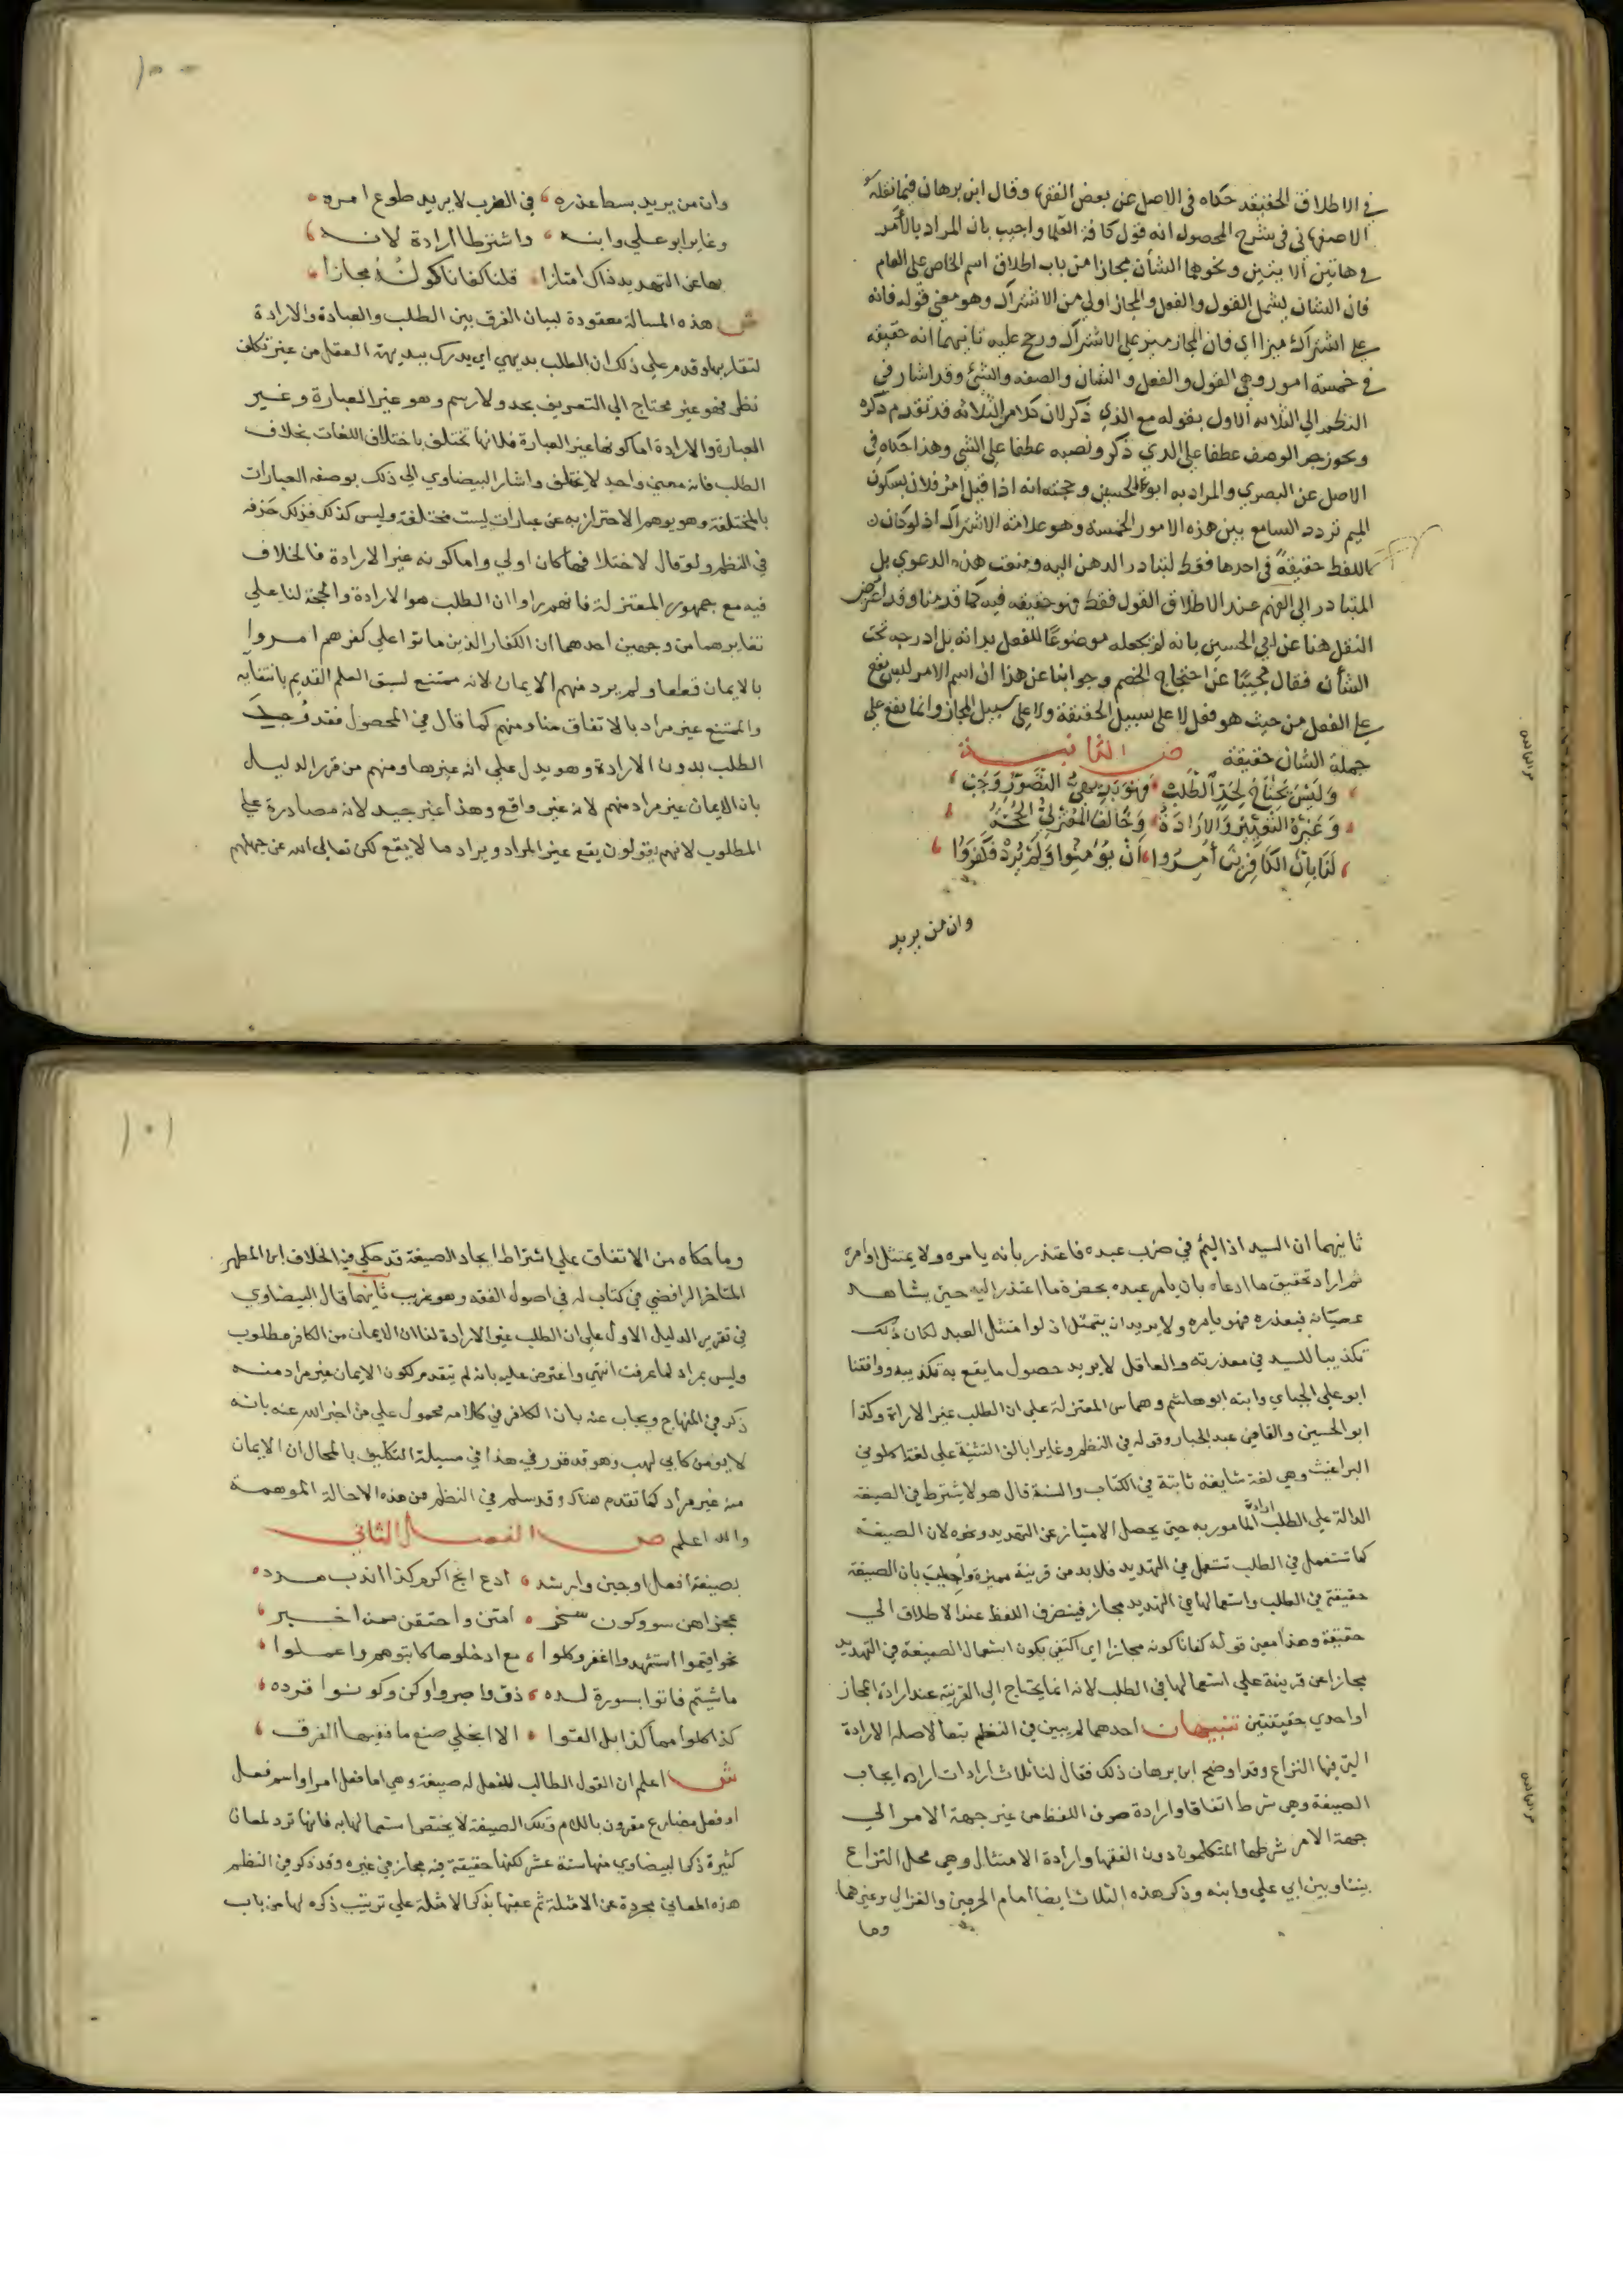 في الاطلاق الحقيقه حكاه في الاصل عن بعض الفقها وقال ابن برهان فيما نقله
الاصفهاني في شرح المحصول انه قول كافة العلما واجيب بان المراد بالأمر
في هاتين الايتين ونحوهما الشأن مجازا من باب اطلاق اسم الخاص على العام
فان الشان يشمل القول والفعل والمجاز اولى من الاشتراك وهو معنى قوله فانه
على اشتراك ميزا اي فان المجاز ميز على الاشتراك ورجح عليه ثانيهما انه حقيقه
في خمسة امور وهي القول والفعل والشان والصفه والشئ وقد اشار في
النظم الي الثلاثه الاول بقوله مع الذي ذكر لان كلامن الثلاثه قد تقدم ذكره
ويجوز جر الوصف عطفا على الذي ذكر ونصبه عطفا على الشي وهذا حكاه في
الاصل عن البصري والمراد به ابو الحسين وحجته انه اذا قيل امر فلان بسكون
الميم تردد السامع بين هذه الامور الخمسة وهو علامة الاشتراك اذ لو كان
اللفظ حقيقةً في احدها فقط لتبادر الذهن اليه ومنعت هذه الدعوي بل
المتبادر الى الفهم عند الاطلاق القول فقط فهو حقيقه فيه كما قدمنا وقد اعترض
النقل هنا عن ابي الحسين بانه لم يجعله موضوعًا للفعل بدانه بل ادرجه تحت
الشأن فقال مجيبًا عن احتجاج الخصم وجوابنا عن هذا ان اسم الامر ليس يقع
على الفعل من حيث هو فعل لا على سبيل الحقيقة ولا على سبيل المجاز وانما يقع على
جملة الشان حقيقة ص الثانيــة
وَلَيْسَ يَحْتَاجُ لِحَدٍّ الطَّلَبُ فَهْوَ بَدِيهِيُّ التَّصَوُّرِ وَجَبْ
وَغَيْرُهُ التَّعْبِيْرُ وَالْاِرَادَةُ وَخَالَفَ المُعْتَزِلِيُّ الحُجَّةُ
لَنَا بِأَنَّ الكَافِرِيْنَ أُمِرُوا أَنْ يُؤْمِنُوا وَلَمْ يُرِدْ فَكَفَرُوا
وان من يريد
١٠٠
وان من يريد بسط عذره في الضرب لا يريد طوع امره
وغاير ابو علي وابنه واشترطا ارادة لانه
بها عن التهديد ذاك امتازا قلنا كفانا كونُهُ مجازا
ش هذه المسالة معقودة لبيان الفرق بين الطلب والعبادة والارادة
لتقاربها وقدم على ذلك ان الطلب بديهي اي يدرك ببديهة العقل من غير تكلف
نظر فهو غير محتاج الي التعريف بحد ولا رسم وهو غير العبارة وغير
العبارة والارادة اما كونها غير العبارة فلانها تختلف باختلاف اللغات بخلاف
الطلب فانه معنى واحد لا يختلف واشار البيضاوي الى ذلك بوصفه العبارات
بالمختلفة وهو يوهم الاحتراز به عن عبارات ليست مختلفة وليس كذلك فلذلك حذفه
في النظم ولو قال لاختلافها كان اولي واما كونه غير الارادة فالخلاف
فيه مع جمهور المعتزلة فانهم راوا ان الطلب هو الارادة والحجة لنا على
تغايرهما من وجهين احدهما ان الكفار الذين ماتوا على كفرهم امروا
بالايمان قطعا ولم يرد منهم الايمان لانه ممتنع لسبق العلم القديم بانتفايه
والممتنع غير مراد بالاتفاق منا ومنهم كما قال في المحصول فقد وُجِدَ
الطلب بدون الارادة وهو يدل علي انه غيرها ومنهم من قرر الدليل
بان الايمان غير مراد منهم لانه غير واقع وهذا غير جيد لانه مصادرة على
المطلوب لانهم يقولون يقع غير المراد ويراد ما لا يقع لكن تعالى الله عن جهلهم
ثانيهما ان السيد اذا ليم في ضرب عبده فاعتذر بانه يامره ولا يمتثل اوامره
ثم اراد تحقيق ما ادعاه بان يامر عبده بحضرة ما اعتذر اليه حتى يشاهد
عصيانه فيعذره فهو يامره ولا يريد ان يتمثل اذ لو امتثل العبد لكان ذلك
تكذيبا للسيد في معذرته والعاقل لا يريد حصول ما يقع به تكذيبه ووافقنا
ابو علي الجباي وابنه ابو هاشم وهما من المعتزلة على ان الطلب غير الارادة وكذا
ابو الحسين والقاضي عبد الجبار وقوله في النظم وغايرا بالف التثنية علي لغة اكلوني
البراغيث وهي لغة شايعه ثابتة في الكتاب والسنة قال هو لا يشترط في الصيغة
الدالة علي الطلب ارادة المامور به حتى يحصل الامتياز عن التهديد ونحوه لان الصيغة
كما تستعمل في الطلب تستعمل في التهديد فلا بد من قرينة مميزة واُجيبَ بان الصيغة
حقيقة في الطلب واستعمالها في التهديد مجاز فينصرف اللفظ عند الاطلاق الي
حقيقة وهذا معنى قوله كفانا كونه مجازا اي اكتفي بكون استعمال الصيغة في التهديد
مجازا عن قرينة علي استعمالها في الطلب لانه انما يحتاج الى القرينة عند ارادة المجاز
او احدي حقيقتين تنبيهات احدهما لم يبين في النظم تبعا لاصله الارادة
التي فيها النزاع وقد اوضح ابن برهان ذلك فقال لنا ثلاث ارادات ارادة ايجاب
الصيغة وهي شرط اتفاقا وارادة صرف اللفظ من غير جهة الامر الي
جهة الامر شرطها المتكلمون دون الفقها وارادة الامتثال وهي محل النزاع
بيننا وبين ابي علي وابنه وذكر هذه الثلاث ايضا امام الحرمين والغزالي وغيرهما
وما
١٠١
وما حكاه من الاتفاق علي اشتراط ايجاد الصيغة قد حكي فيه الخلاف ابن المطهر
المتاخر الرافضي في كتاب له في اصول الفقه وهو غريب ثانيهما قال البيضاوي
في تقرير الدليل الاول علي ان الطلب غير الارادة لنا ان الايمان من الكافر مطلوب
وليس بمراد لما عرفت انتهي واعترض عليه بانه لم يتقدم كون الايمان غير مراد منه
ذكر في المنهاج ويجاب عنه بان الكافر في كلامه محمول علي من اخبر الله عنه بانه
لا يومن كابي لهب وهو قد قرر في هذا في مسيلة التكليف بالمحال ان الايمان
منه غير مراد كما تقدم هناك وقد سلم في النظم من هذه الاحالة الموهمة
والله اعلم ص الفصل الثاني
بصيغة افعل اوجبن وارشد ادع ابح اكرم كذا اندب هدد
عجز اهن سو وكون سخر امنن واحتقر من اخبر
نحو اقيموا استشهدوا اغفر وكلوا مع ادخلوها كاتبوهم واعملوا
ما شيتم فاتوا بسورة لده ذق فاصبروا وكن وكونوا قرده
كذا كلوا مما كذا بل القوا الا انجلي صنع ما ففيها الفرق
ش اعلم ان القول الطالب للفعل له صيغة وهي اما فعل امر او اسم فعل
او فعل مضارع مقرون باللام وتلك الصيغة لا يختص استعمالها به فانها ترد لمعان
كثيرة ذكر البيضاوي منها ستة عشر لكنها حقيقة فيه مجاز في غيره وقد ذكر في النظم
هذه المعاني مجردة عن الامثلة ثم عقبها بذكر الامثلة علي ترتيب ذكره لها من باب